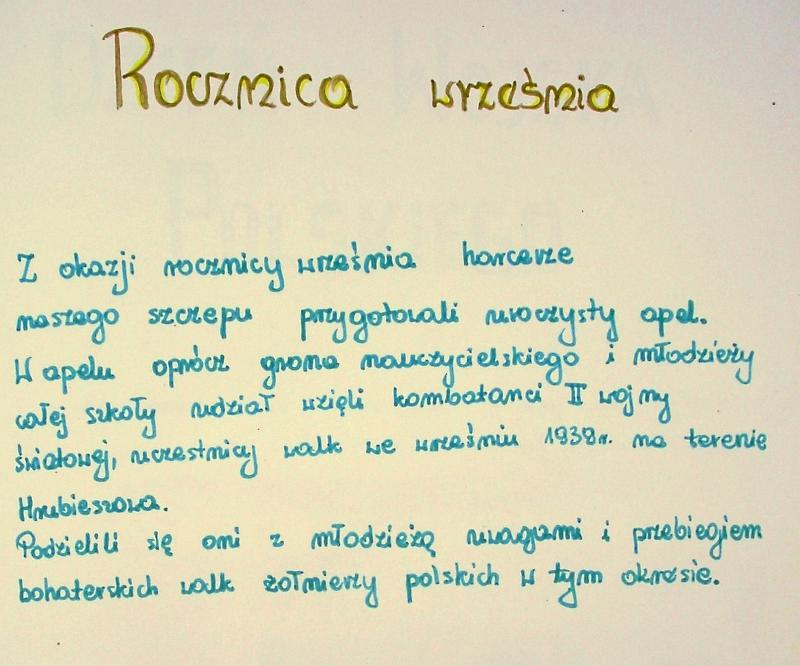 Rocznica września
Z okazji rocznicy września harcerze
naszego szczepu przygotowali uroczysty apel.
W apelu oprócz grona nauczycielskiego i młodzieży
całej szkoły udział wzięli kombatanci II wojny
światowej, uczestnicy walk we wrześniu 1939r. na terenie
Hrubieszowa.
Podzielili się oni z młodzieżą uwagami i przebiegiem
bohaterskich walk żołnierzy polskich w tym okresie.